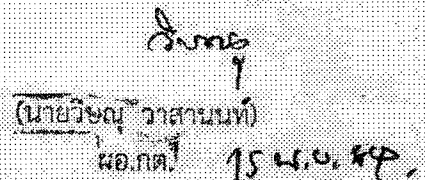 (นายวิษณุ วาสานนท์)
ผอ.กต. 15 พ.ย.